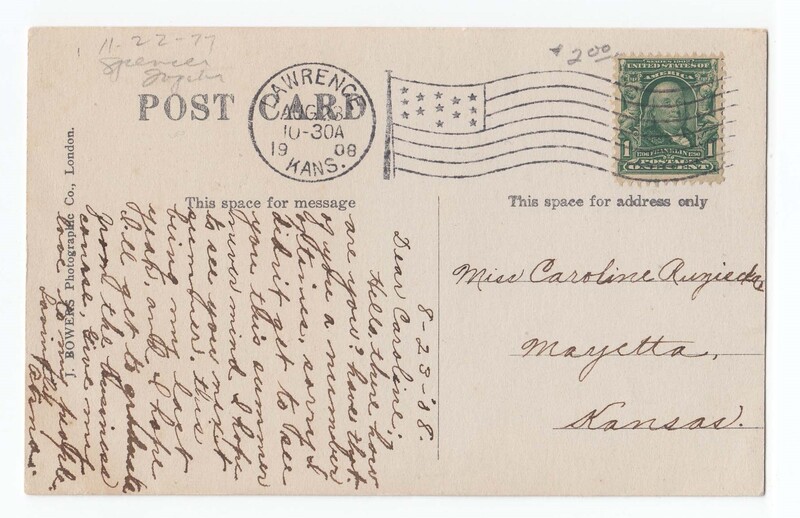 11-22-77
Spencer
$2.00
POST CARD
LAWRENCE
AUG 23
10-30A
1908
KANS.
SERIES 1902
UNITED STATES OF
AMERICA
FRANKLIN
1
1
POSTAGE
ONE CENT
This space for message
This space for address only
J. BOWERS Photographic Co., London.
8-23-'08.
Dear Caroline;
Hello there how
are you? have that.
of you a number
of times, sorry I
didn't get to see
you this summer
never mind I hope
to see you next
summer. this
being my last
year, and I hope
I'll get to graduate
from the Business
course, Give my
love to my people.
Lovingly
Miss Caroline
Mayetta,
Kansas.